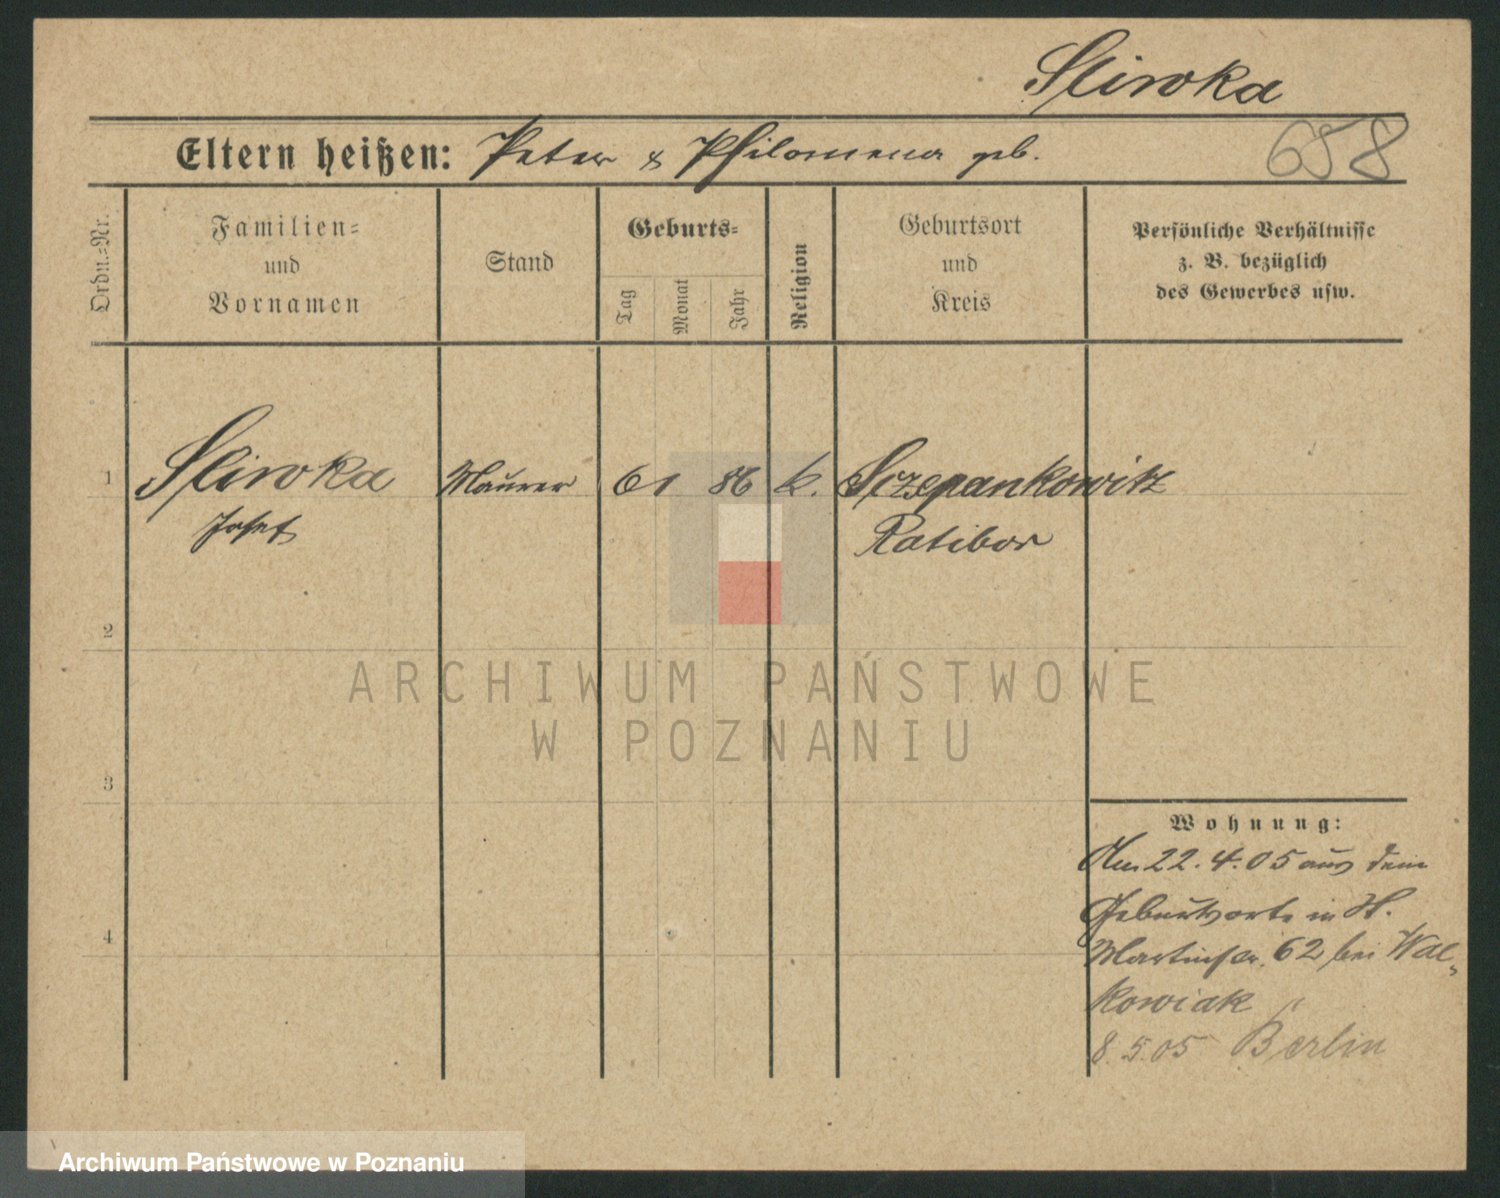 Sliwka
Eltern heißen: Peter & Philomena geb.
658
Ordn.-Nr.
Familien-
und
Vornamen
Stand
Geburts-
Tag
Monat
Jahr
Religion
Geburtsort
und
Kreis
Persönliche Verhältnisse
z. B. bezüglich
des Gewerbes usw.
1 Sliwka Maurer 6 1 86 k. Sczepankowitz
Josef Ratibor
2
ARCHIWUM PAŃSTWOWE
W POZNANIU
3
4
Wohnung:
Am 22.4.05 aus dem
Geburtsorte in St.
Martinstr. 62 bei Wal-
kowiak
8.5.05 Berlin
Archiwum Państwowe w Poznaniu